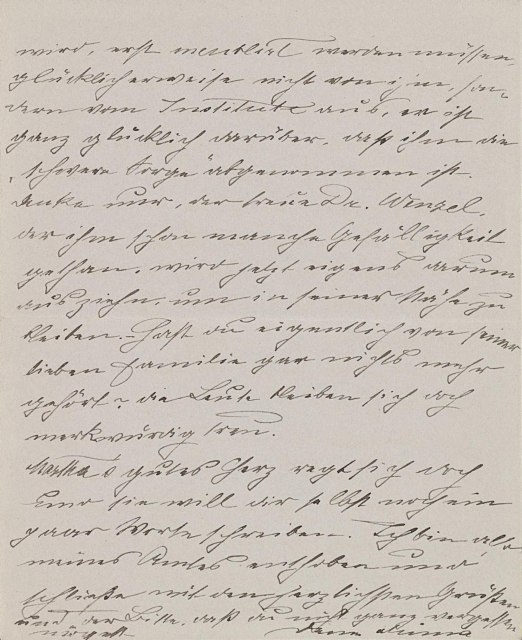 wird, erst meublirt werden müssen,
glücklicherweise nicht von ihm, son-
dern vom Institute aus, er ist
ganz glücklich darüber, daß ihm die
„schwere Sorge" abgenommen ist.
Denke nur, der treue Dr. Wenzel,
der ihm schon manche Gefälligkeit
gethan, wird jetzt eigens darum
ausziehn, um in seiner Nähe zu
bleiben. – Hast du eigentlich von seiner
lieben Familie gar nichts mehr
gehört? die Leute bleiben sich doch
merkwürdig treu.
Martha's gutes Herz regt sich doch
und sie will dir selbst noch ein
paar Worte schreiben. Ich bin also
meines Amtes enthoben und
schließe mit den herzlichsten Grüßen
und der Bitte, daß du nicht ganz vergessen
mögest
Deine